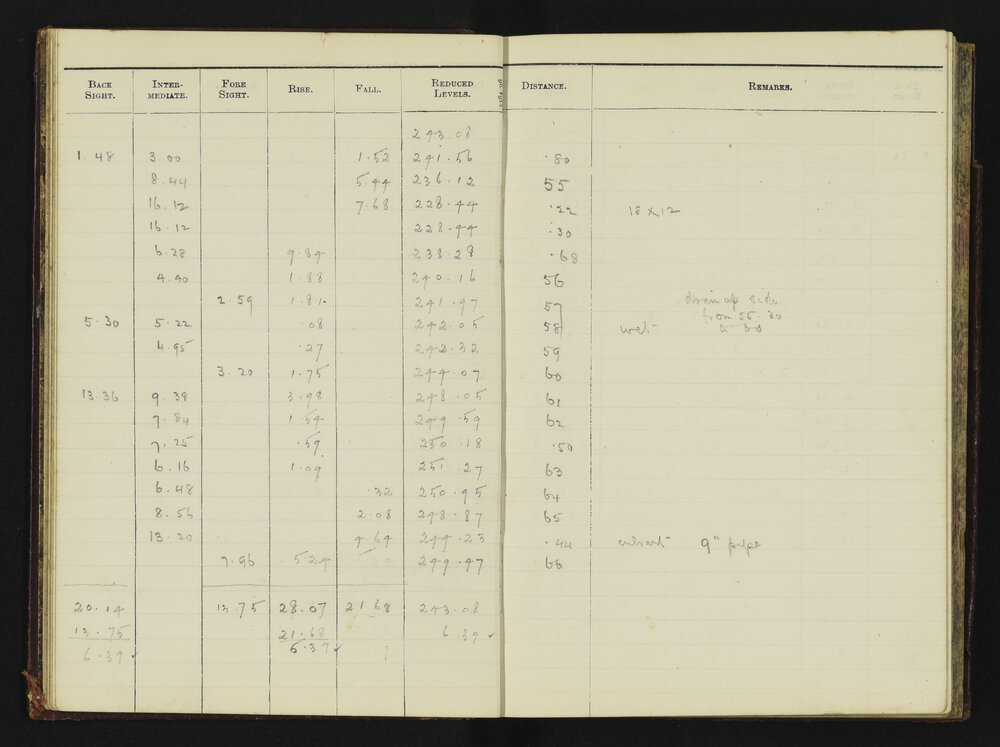 BACK SIGHT. INTER-MEDIATE. FORE SIGHT. RISE. FALL. REDUCED LEVELS. DISTANCE. REMARKS.
243.08
1.48 3.00 1.52 241.56 .80
8.44 5.44 236.12 55
16.12 7.68 228.44 .22 18 x 12
16.12 228.44 .30
6.28 9.84 238.28 .68
4.40 1.88 240.16 56
2.59 1.81 241.97 57 drain up side
from 55.30
5.30 5.22 .08 242.05 58 wet to
4.95 .27 242.32 59
3.20 1.75 244.07 60
13.36 9.38 3.98 248.05 61
7.84 1.54 249.59 62
7.25 .59 250.18 .50
6.16 1.09 251.27 63
6.48 .32 250.95 64
8.56 2.08 248.87 65
13.20 4.64 244.23 .44 culvert 9" pipe
7.96 5.24 249.47 66
20.14 13.75 28.07 21.68 243.08
13.75 21.68 6.39 ✓
6.39 ✓ 6.39 ✓